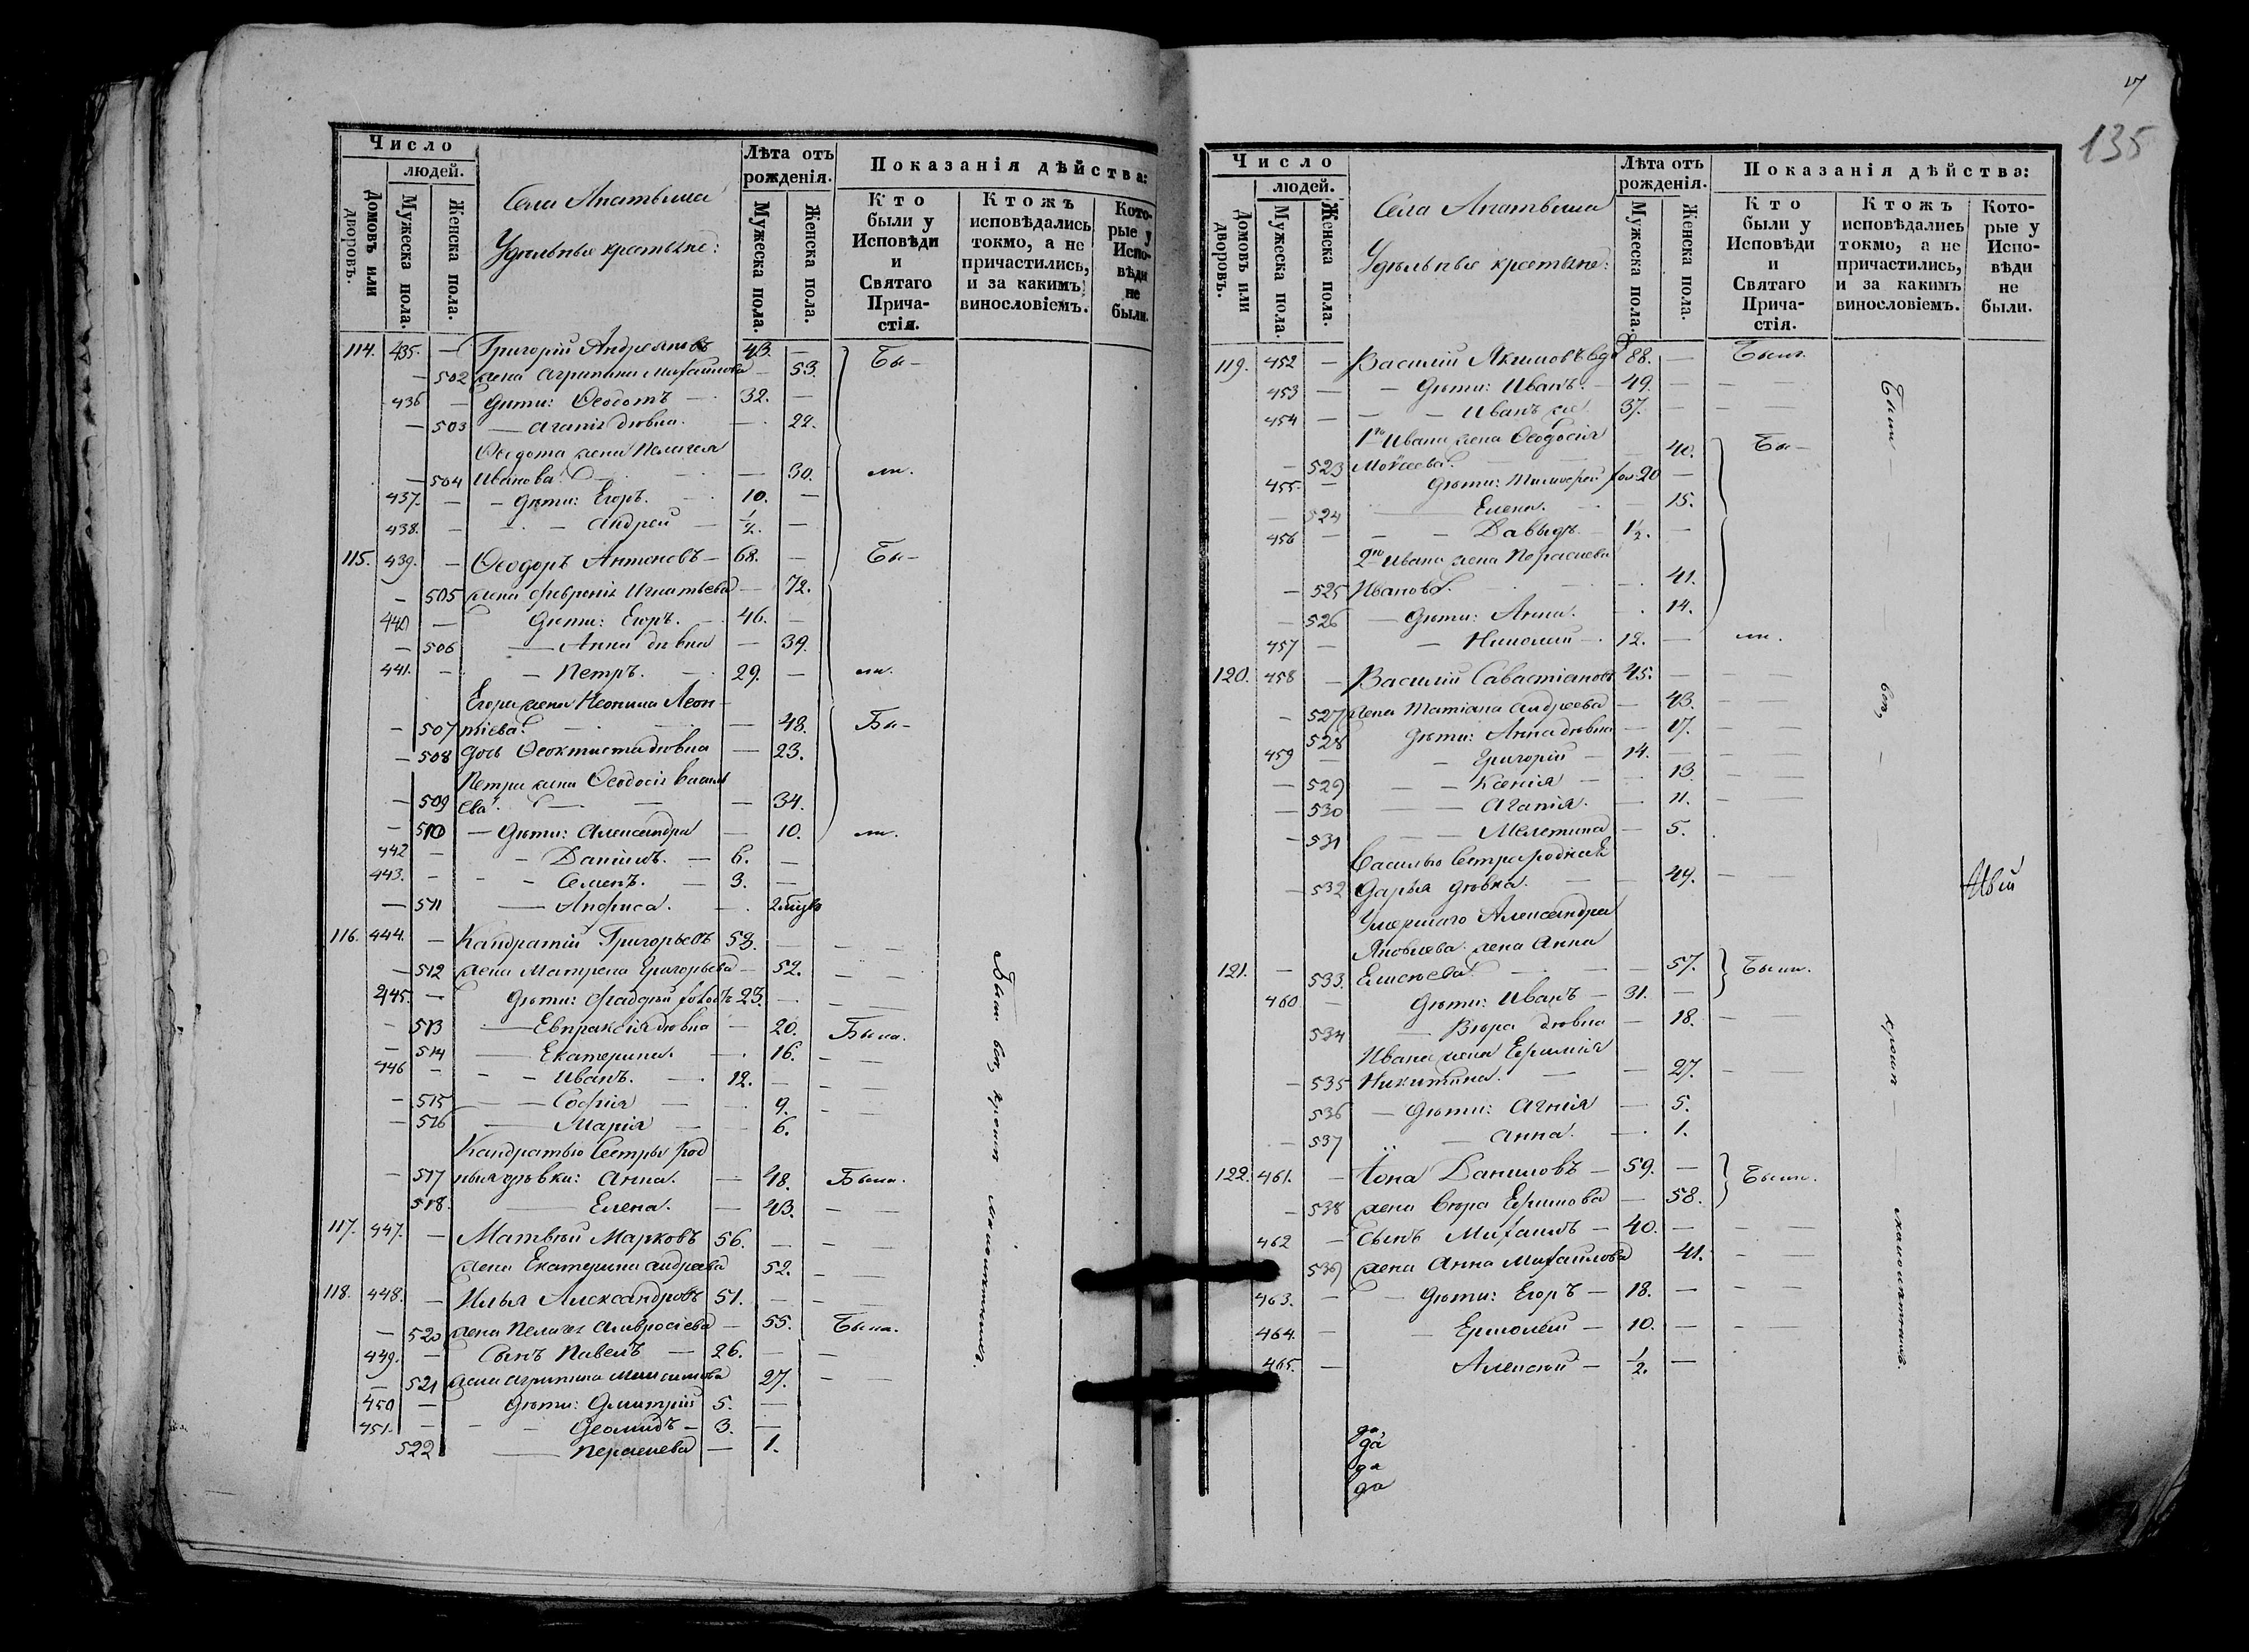 Число
людей.
Домовъ или дворовъ.
Мужеска пола.
Женска пола.
Села
Удѣльные крестьяне:
Лѣта отъ рожденія.
Мужеска пола.
Женска пола.
Показанія дѣйства:
Кто были у Исповѣди и Святаго Прича-стія.
Ктожъ исповѣдались токмо, а не причастились, и за какимъ винословіемъ.
Кото-рые у Испо-вѣди не были.
114. 435. — Григорій 43. — Бы-
— 502 жена Агрипина Михайлова — 53.
436 — Дѣти: Ѳеодотъ — 32. —
— 503 — Агапія дѣвка. — 22.
Ѳедота жена Пелагея
— 504 Иванова. — 30. ли.
437. — — Дѣти: Егоръ. 10. —
438. — — Андрей — 1/2. —
115. 439. — Ѳеодоръ Антоновъ — 68. — Бы-
— 505 жена Февронія Игнатьева — 72.
440 — Дѣти: Егоръ. — 46. —
— 506 — Анна дѣвка — 39.
441. — — Петръ. 29. — ли.
Егора жена Неонила Леон-
— 507 тіева. — 48. Бы-
— 508 дочь Ѳеоктиста дѣвка — 23.
Петра жена Ѳеодосія Василь
— 509 ева. — 34.
— 510 — Дѣти: Александра — 10. ли.
442 — — Даніилъ. — 6. —
443. — — Семенъ. — 3. —
— 511 — Анфиса. —
116. 444. — Кандратій Григорьевъ 53. — — —
— 512 жена Матрена Григорьева — 52. — —
445. — Дѣти: Фаддей холостъ 23. — — —
— 513 — Евпраксія дѣвка — 20. Была.
— 514 — Екатерина. — 16. — —
446 — — Иванъ. — 12. — — —
— 515 — Софія — 9. — —
— 516 — Марія — 6.
Кандратью Сестры род
— 517 ныя дѣвки: Анна. — 48. Была.
518. — Елена. — 43. — —
117. 447. — Матвѣй Марковъ 56. — — —
жена Екатерина Андреева 52. — —
118. 448. — Илья Александровъ 51. — — —
— 520 жена Пелагея Амвросіева — 55. Была.
449. — Сынъ Павелъ — 26. — —
— 521 жена Агрипина 27. — —
450 — Дѣти: Дмитрій 5. —
451. — — Деомидъ — 3. —
522 — Пераскева — 1.
135
Число
людей.
Домовъ или дворовъ.
Мужеска пола.
Женска пола.
Села
Удѣльные крестьяне:
Лѣта отъ рожденія.
Мужеска пола.
Женска пола.
Показанія дѣйства:
Кто были у Исповѣди и Святаго Прича-стія.
Ктожъ исповѣдались токмо, а не причастились, и за какимъ винословіемъ.
Кото-рые у Испо-вѣди не были.
119. 452 — Василій Акимовъ вд 88. —
453 — — Дѣти: Иванъ. — 49. — — —
454 — — — Иванъ же 37. — — —
1го Ивана жена Ѳеодосія
— 523 Моѵсеева. — 40. Бы-
455. — Дѣти: хол. 20 —
— 524 — Елена. — 15.
456 — — — Давыдъ. 1 1/2. —
2го Ивана жена Пораскева
— 525 Иванова. — 41.
— 526 — Дѣти: Анна. — 14.
457 — — Николай — 12. — ли.
120. 458 — Василій Савастіановъ 45. — — —
— 527 жена Татіана Андреева — 43. —
528 Дѣти: Анна дѣвка — 17. — —
459 — — Григорій — 14. — — —
— 529 — — Ксенія — 13. — —
— 530 — — Агапія. — 11. — —
— 531 — — — 5.
Василью Сестра родная
— 532 Дарья дѣвка. — 49. — —
Умершаго Александра
Яковлева жена Анна
121. — 533. Елисѣева. — 57. Были.
460 — Дѣти: Иванъ — 31. —
534 — Вѣра дѣвка — 18. — —
Ивана жена
— 535 Никитина. — 27. — —
536 — Дѣти: Агнія — 5.
— 537 — Анна. — 1.
122. 461. — Іона Даниловъ — 59. — Были.
— 538 жена Вѣра — 58.
462 — Сынъ Михаилъ — 40. — — —
539 жена Анна Михайлова 41. — —
463. — — Дѣти: Егоръ — 18. — — —
464. — — Ермолай — 10. — — —
465. — Алексѣй — 1/2. —
да,
да
да
да